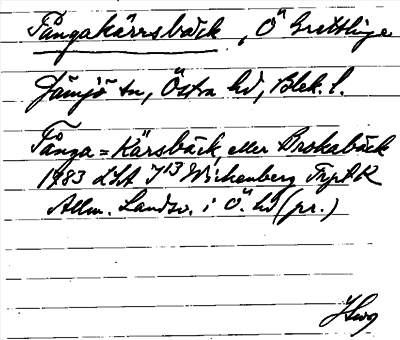 Tångakärrsbäck, Ö Grettlinge
Jämjö sn, Östra hd, Blek. l.
Tånga = Kärsbäck, eller Brokabäck
1783 LSA Wickenberg
Allm. Landsv. i Ö. hd (pr.)